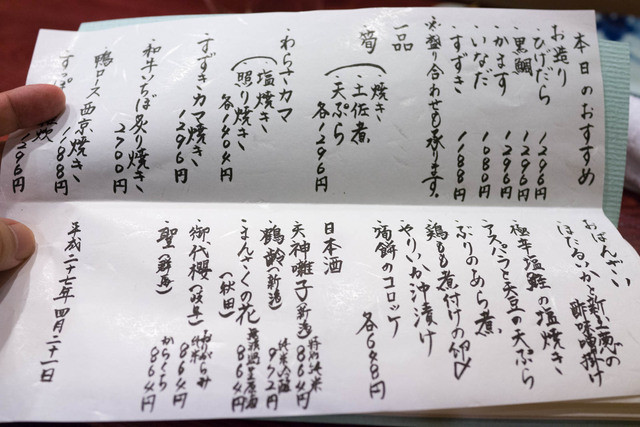 本日のおすすめ
お造り
・ひげだら 1296円
・黒鯛 1296円
・かます 1296円
・いなだ 1080円
・すずき 1188円
※盛り合わせも承ります。
一品
筍
・焼き
・土佐煮
・天ぷら
各1296円
わらさカマ
・塩焼き
・照り焼き
各1404円
・すずきカマ焼き 1296円
・和牛いちぼ炙り焼き 2700円
・鴨ロース西京焼き 1188円
・すっぽ 1296円
おばんざい
・ほたるいかと新玉葱の
酢味噌掛け
塩鮭の塩焼き
・アスパラと天豆の天ぷら
・ぶりのあら煮
・鶏もも煮付けの卵〆
・やりいか沖漬け
・蕎餅のコロッケ
各648円
日本酒
・天神囃子(新潟) 特別純米 864円
・鶴齢(新潟) 純米吟醸 972円
・まんさくの花
(秋田) 864円
・御代櫻(岐阜) 純米 864円
・聖(群馬) からくち 864円
平成二十七年四月二十一日